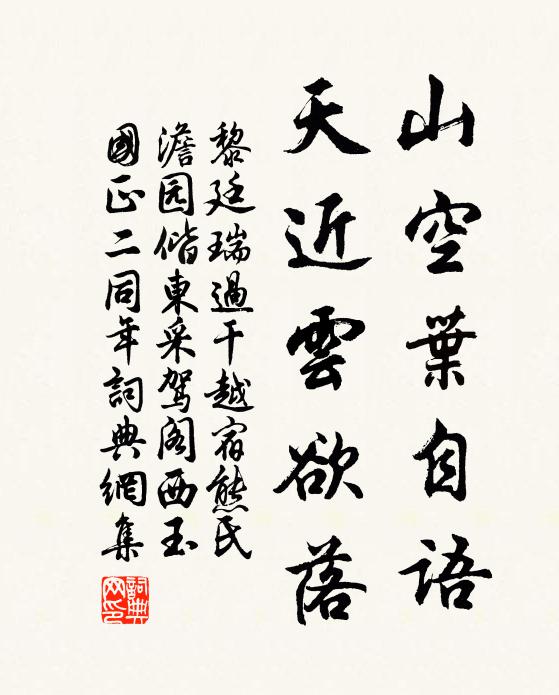 山空葉自語
天近雲欲落
黎廷瑞過干越宿熊氏
澹园偕東采駕阁西玉
國正二同年詞典網集
詞典网印